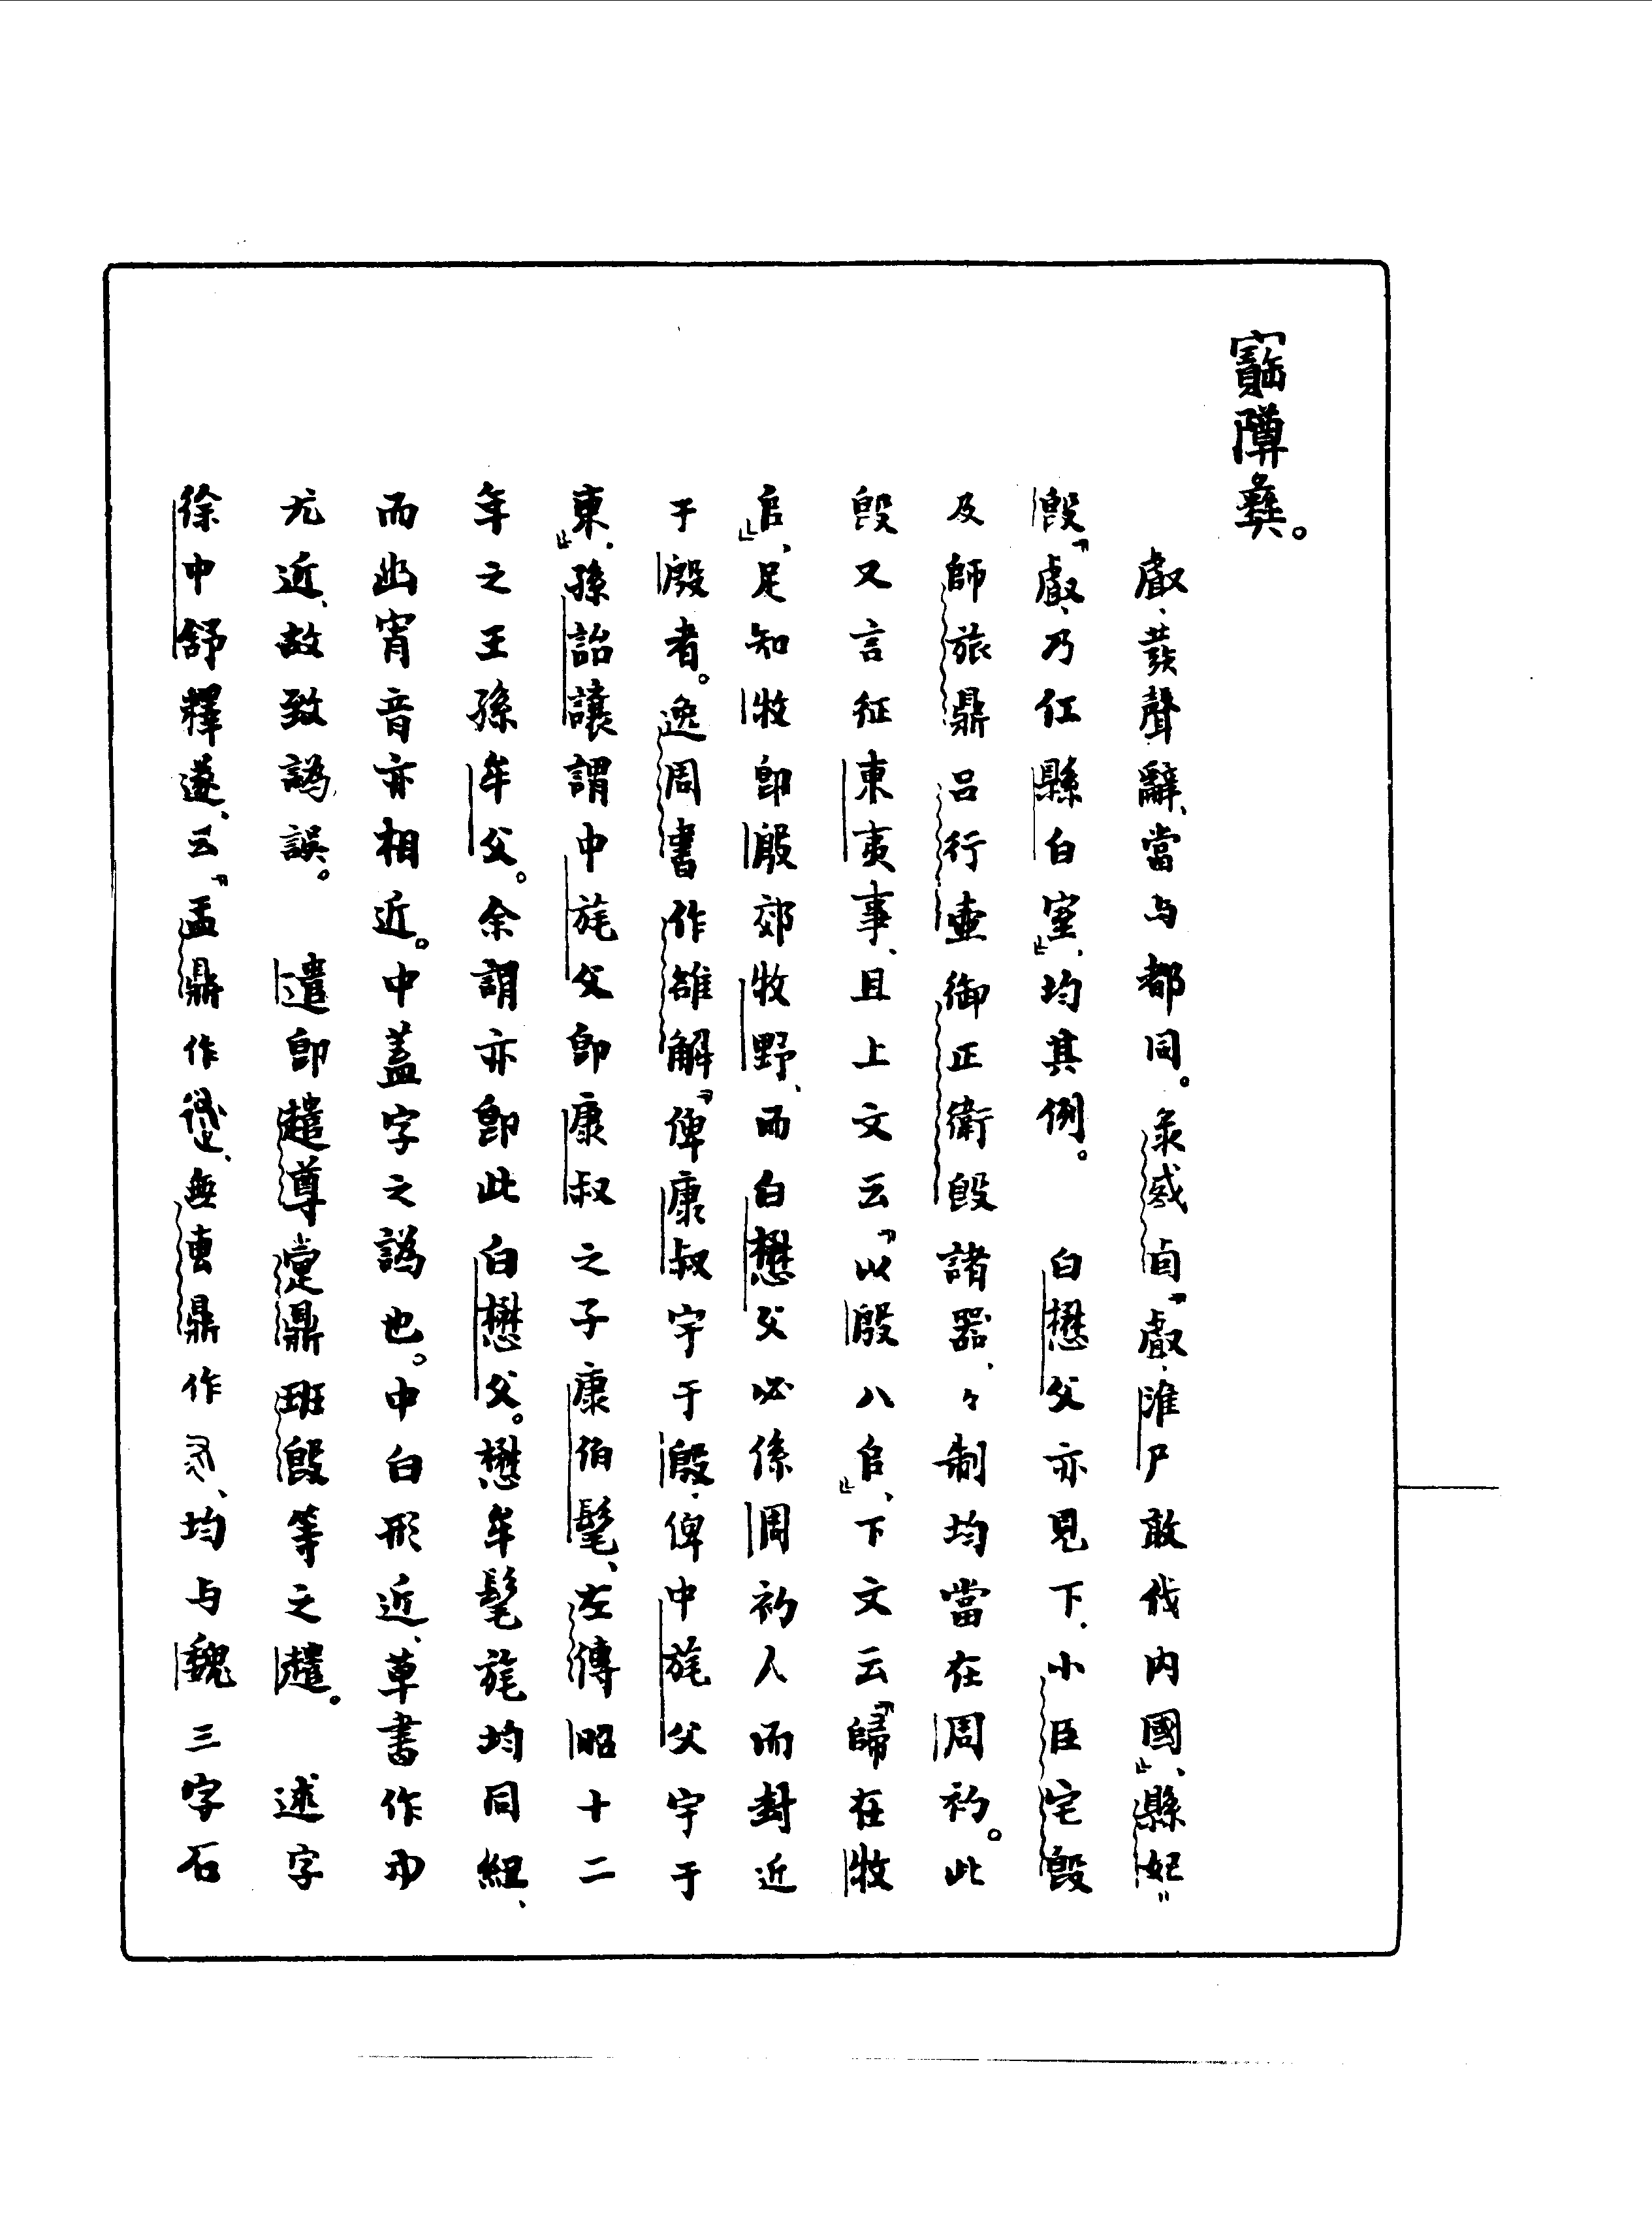 寶𨻰彝。
𠭯、發聲辭、當与都同。彔㦰卣『𠭯、淮尸敢伐内國』、縣妃
𣪘『𠭯、乃任縣白室』、均其例。 白懋父亦見下、小臣宅𣪘
及師旅鼎呂行壺御正衛𣪘諸器、々制均當在周初。此
𣪘又言征東夷事、且上文云『以殷八𠂤』、下文云『歸在牧
𠂤』、足知牧即殷郊牧野、而白懋父必係周初人而封近
于殷者。逸周書作雒解『俾康叔宇于殷、俾中旄父宇于
東』、孫詒讓謂中旄父即康叔之子康伯髦、左傳昭十二
年之王孫牟父。余謂亦即此白懋父。懋牟髦旄均同紐、
而幽宵音亦相近。中蓋字之譌也。中白形近、草書作
尤近、故致譌誤。 遣即趞尊𡪁鼎班𣪘等之趞。 述字
徐中舒釋遂、云『盂鼎作、無叀鼎作、均与魏三字石